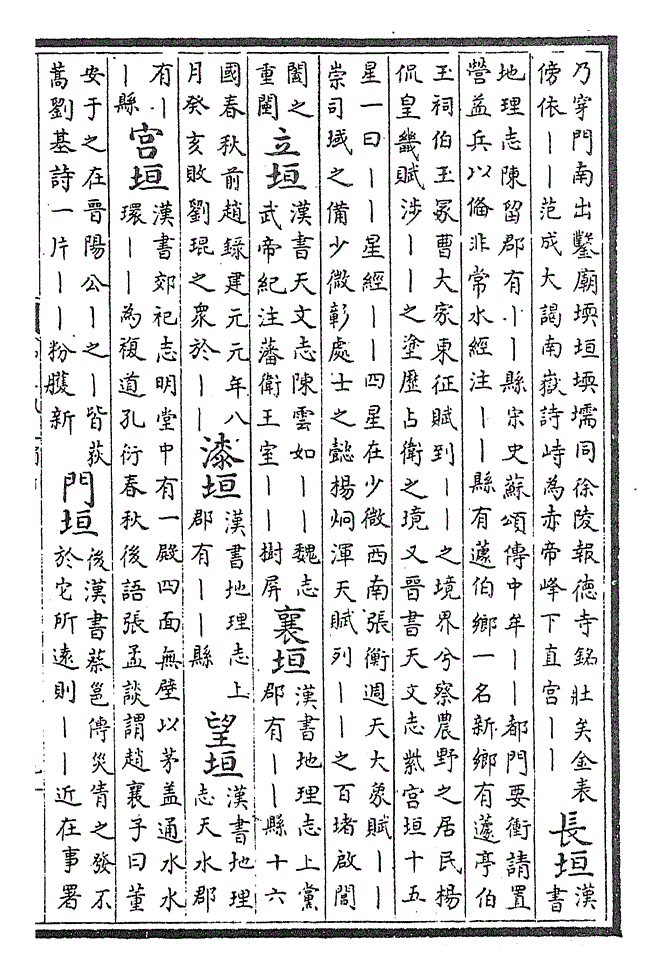 乃穿門南出鑿廟堧垣堧壖同徐陵報德寺銘壯矣金表
傍依丨丨范成大謁南嶽詩峙為赤帝峰下直宮丨丨
長垣
漢
書
地理志陳留郡有丨丨縣宋史蘇頌傳中牟丨丨都門要衝請置
營益兵以俻非常水經注丨丨縣有蘧伯鄉一名新鄉有蘧亭伯
玉祠伯玉冢曹大家東征賦到丨丨之境界兮察農野之居民楊
侃皇畿賦涉丨丨之塗歷占衛之境又晉書天文志紫宮垣十五
星一曰丨丨星經丨丨四星在少微西南張衡週天大象賦丨丨
崇司域之備少微彰處士之懿楊炯渾天賦列丨丨之百堵啟閶
闔之
重闈
立垣
漢書天文志陳雲如丨丨魏志
武帝紀注藩衛王室丨丨樹屏
襄垣
漢書地理志上黨
郡有丨丨縣十六
國春秋前趙錄建元元年八
月癸亥敗劉琨之衆於丨丨
漆垣
漢書地理志上
郡有丨丨縣
望垣
漢書地理
志天水郡
有丨
丨縣
宮垣
漢書郊祀志明堂中有一殿四面無壁以茅盖通水水
環丨丨為複道孔衍春秋後語張孟談謂趙襄子曰董
安于之在晉陽公丨之丨皆荻
蒿劉基詩一片丨丨粉雘新
門垣
後漢書蔡邕傳災眚之發不
於它所逺則丨丨近在事署